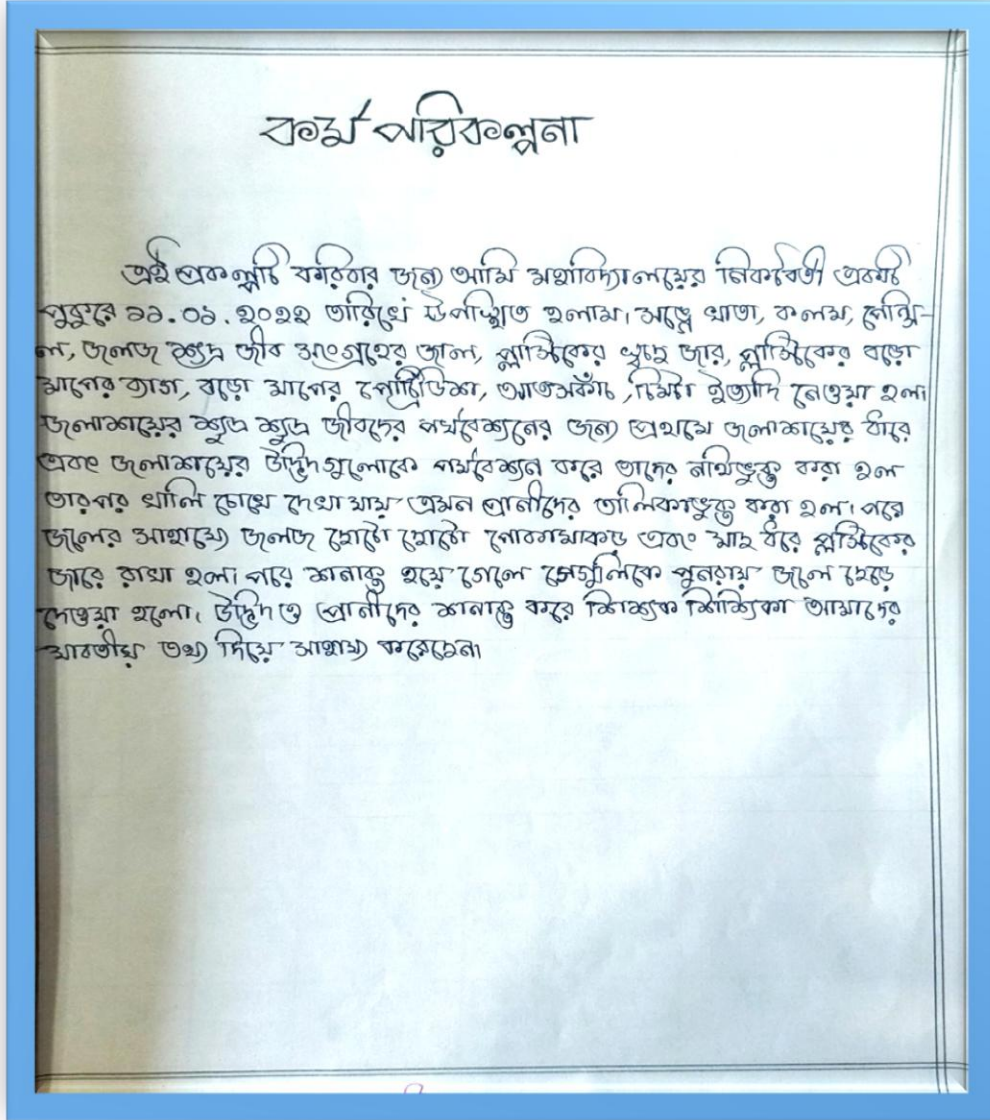 কর্ম পরিকল্পনা
এই প্রকল্পটি করিবার জন্য আমি মহাবিদ্যালয়ের নিকটবর্তী একটি
পুকুরে ১১.০১.২০২২ তারিখে উপস্থিত হলাম। সঙ্গে খাতা, কলম, পেন্সি-
ল, জলজ ক্ষুদ্র জীব সংগ্রহের জাল, প্লাস্টিকের স্বচ্ছ জার, প্লাস্টিকের বড়ো
মাপের ব্যাগ, বড়ো মাপের পেট্রিডিশ, আতসকাঁচ, চিমটা ইত্যাদি নেওয়া হল।
জলাশয়ের ক্ষুদ্র ক্ষুদ্র জীবদের পর্যবেক্ষনের জন্য প্রথমে জলাশয়ের ধারে
এবং জলাশয়ের উদ্ভিদগুলোকে পর্যবেক্ষন করে তাদের নথিভুক্ত করা হল
তারপর খালি চোখে দেখা যায় এমন প্রানীদের তালিকাভুক্ত করা হল। পরে
জলের সাহায্যে জলজ ছোটো ছোটো পোকামাকড় এবং মাছ ধরে প্লাস্টিকের
জারে রাখা হল। পরে শনাক্ত হয়ে গেলে সেগুলিকে পুনরায় জলে ছেড়ে
দেওয়া হলো। উদ্ভিদ ও প্রানীদের শনাক্ত করে শিক্ষক শিক্ষিকা আমাদের
যাবতীয় তথ্য দিয়ে সাহায্য করেছেন।